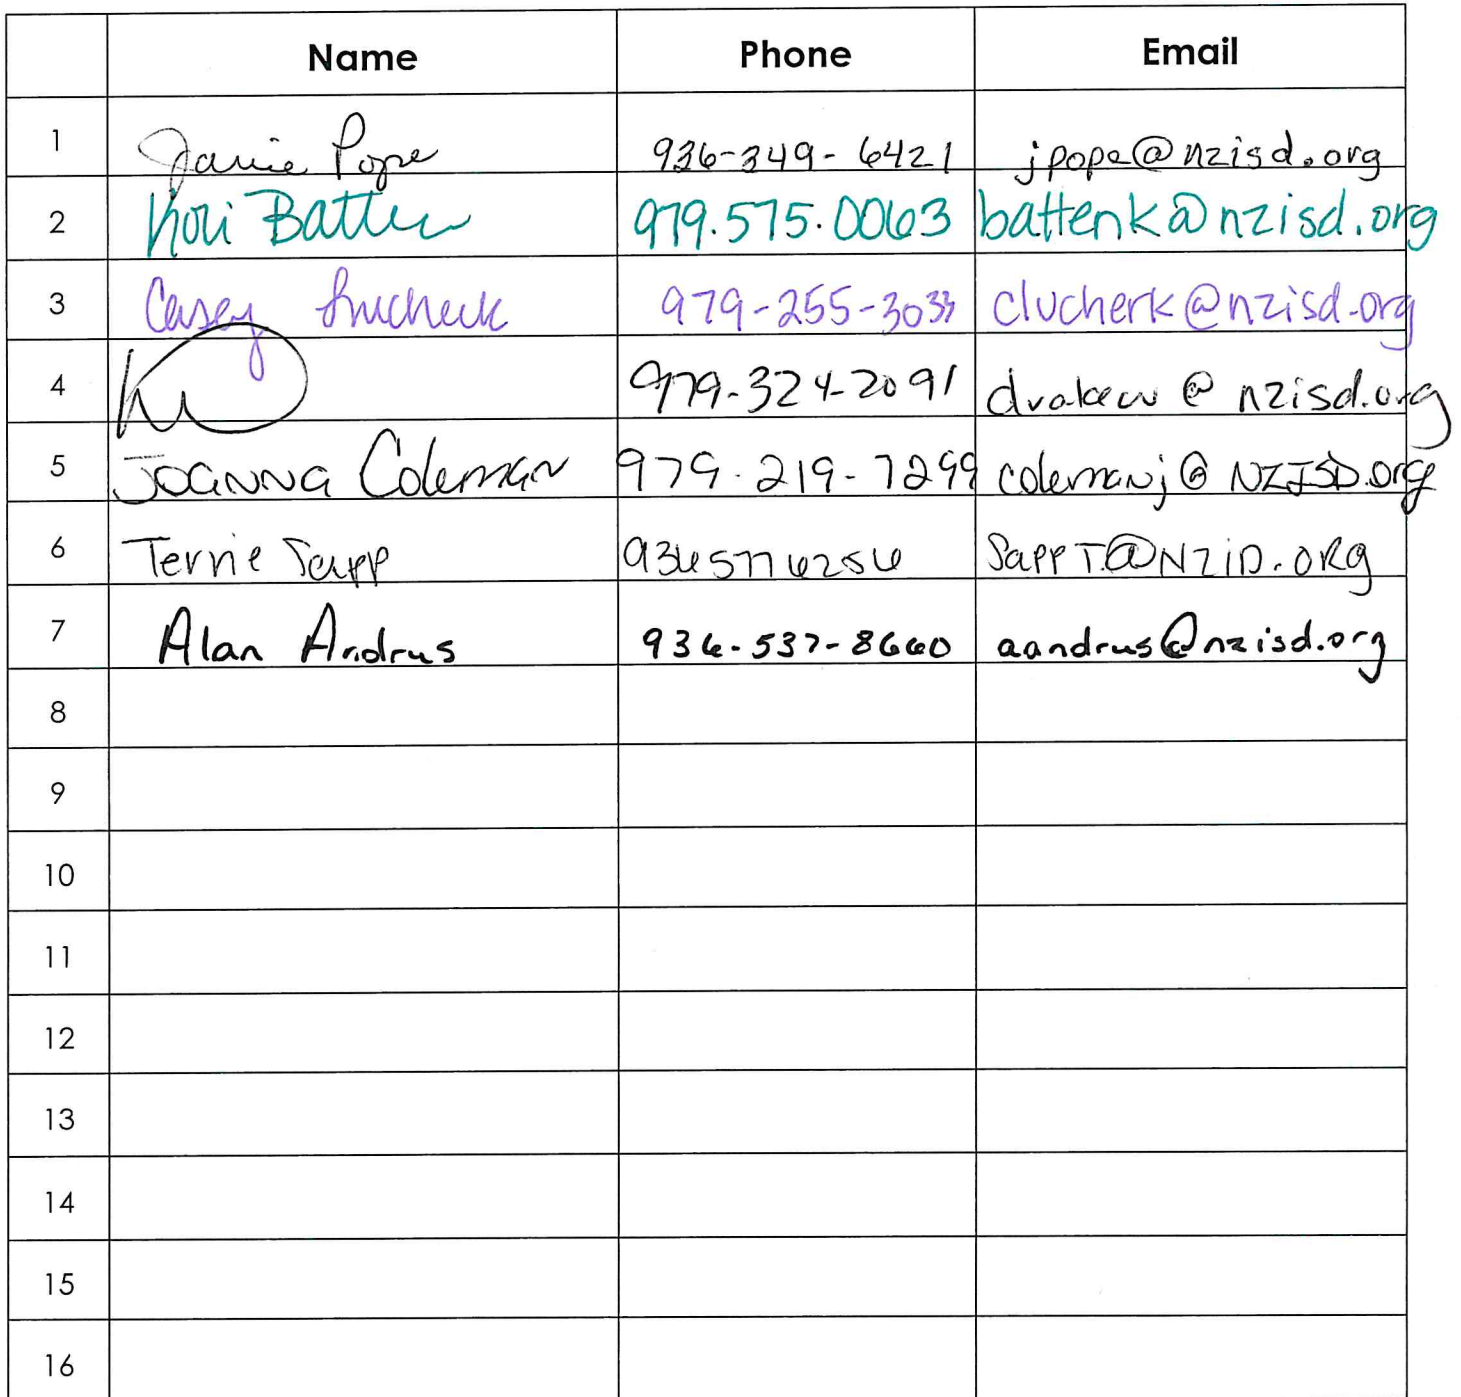 Name Phone Email
1 Janie Pope 936-349-6421 jpope@nzisd.org
2 Kori Batten 979.575.0063 battenk@nzisd.org
3 Casey 979-255-3033 clucherk@nzisd.org
4 979-324-2091 drakew@nzisd.org
5 Joanna Coleman 979-219-7299 colemanj@NZISD.org
6 Terrie Sapp 9365776256 SappT@NZID.ORG
7 Alan Andrus 936-537-8660 aandrus@nzisd.org
8
9
10
11
12
13
14
15
16